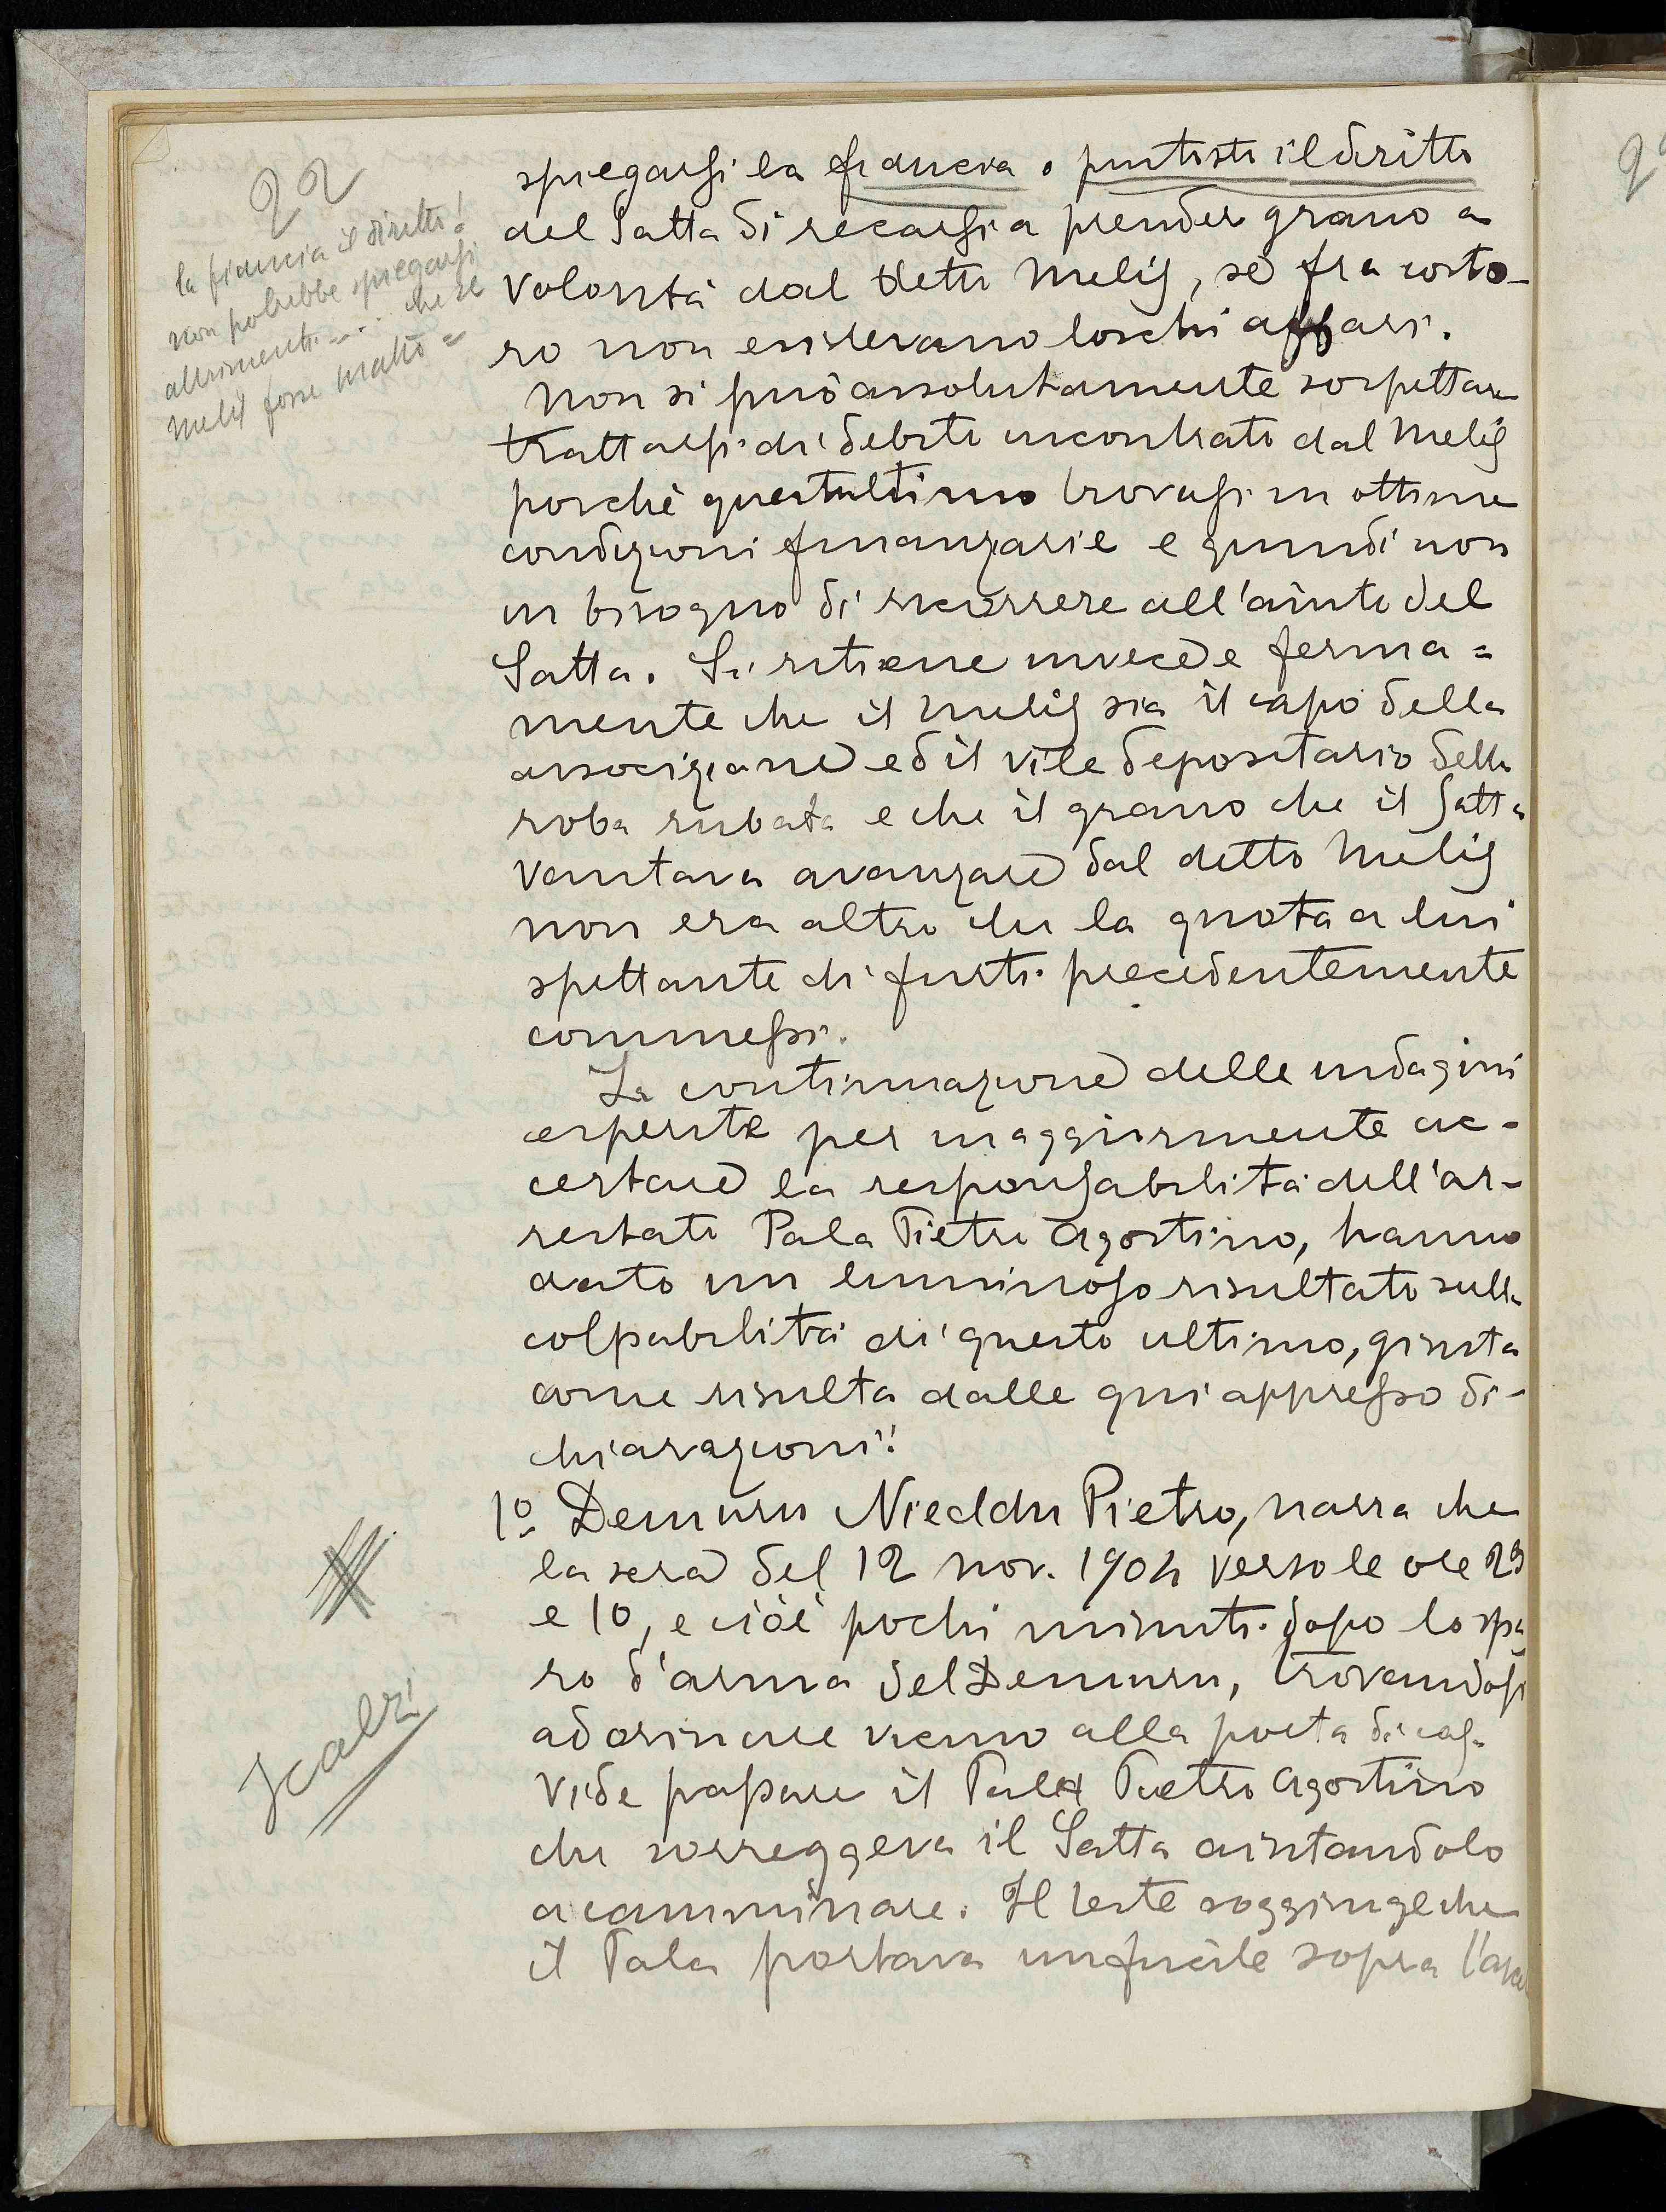 22
la fiducia il diritto!
non potrebbe spiegarsi
altrimenti .... che se
Melis fosse matto =
spiegarsi la fiducia o piuttosto il diritto
del Satta di recarsi a prender grano a
volontà dal detto Melis, se fra costo-
ro non esistevano loschi affari.
Non si può assolutamente sospettare
trattarsi di debito incontrato dal Melis
perchè quest'ultimo trovasi in ottime
condizioni finanziarie e quindi non
in bisogno di ricorrere all'aiuto del
Satta. Si ritiene invece e ferma=
mente che il Melis sia il capo della
associazione ed il vile depositario della
roba rubata e che il grano che il Satta
vantava avanzare dal detto Melis
non era altro che la quota a lui
spettante di furti precedentemente
commessi.
La continuazione delle indagini
esperite per maggiormente ac-
certare la responsabilità dell'ar-
restato Pala Pietro Agostino, hanno
dato un luminoso risultato sulla
colpabilità di questo ultimo, giusta
come risulta dalle qui appresso di-
chiarazioni:
1º Demuru Nieddu Pietro, narra che
la sera del 12 nov. 1904 verso le ore 23
e 10, e cioè pochi minuti dopo lo spa
ro d'arma del Demuru, trovandosi
ad orinare vicino alla porta di casa
vide passare il Pala Pietro Agostino
che sorreggeva il Satta aiutandolo
a camminare. Il teste soggiunge che
il Pala portava un fucile sopra
Scalzi